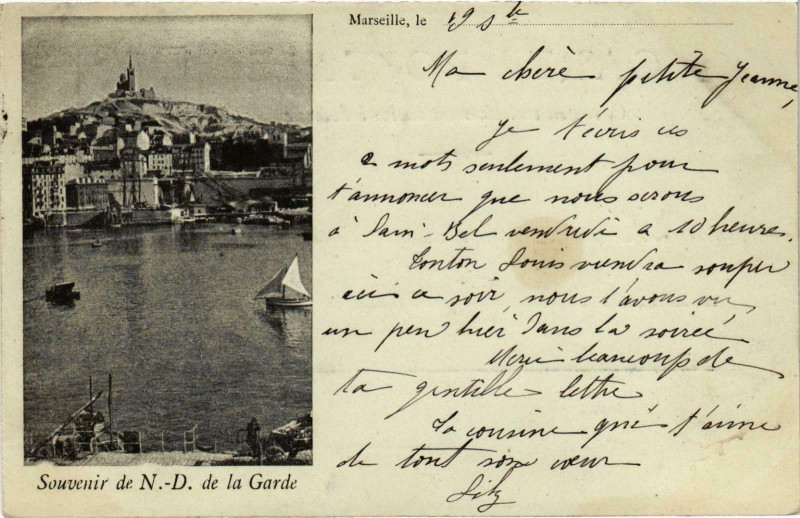 Marseille, le 19 Sbre
Ma chère petite Jeanne,
Je t'écris ces
2 mots seulement pour
t'annoncer que nous serons
à Sain-Bel vendredi à 10 heures.
Tonton Louis viendra souper
ici ce soir, nous l'avons vu
un peu hier dans la soirée
Merci beaucoup de
ta gentille lettre
Ta cousine qui t'aime
de tout son cœur
Souvenir de N.-D. de la Garde